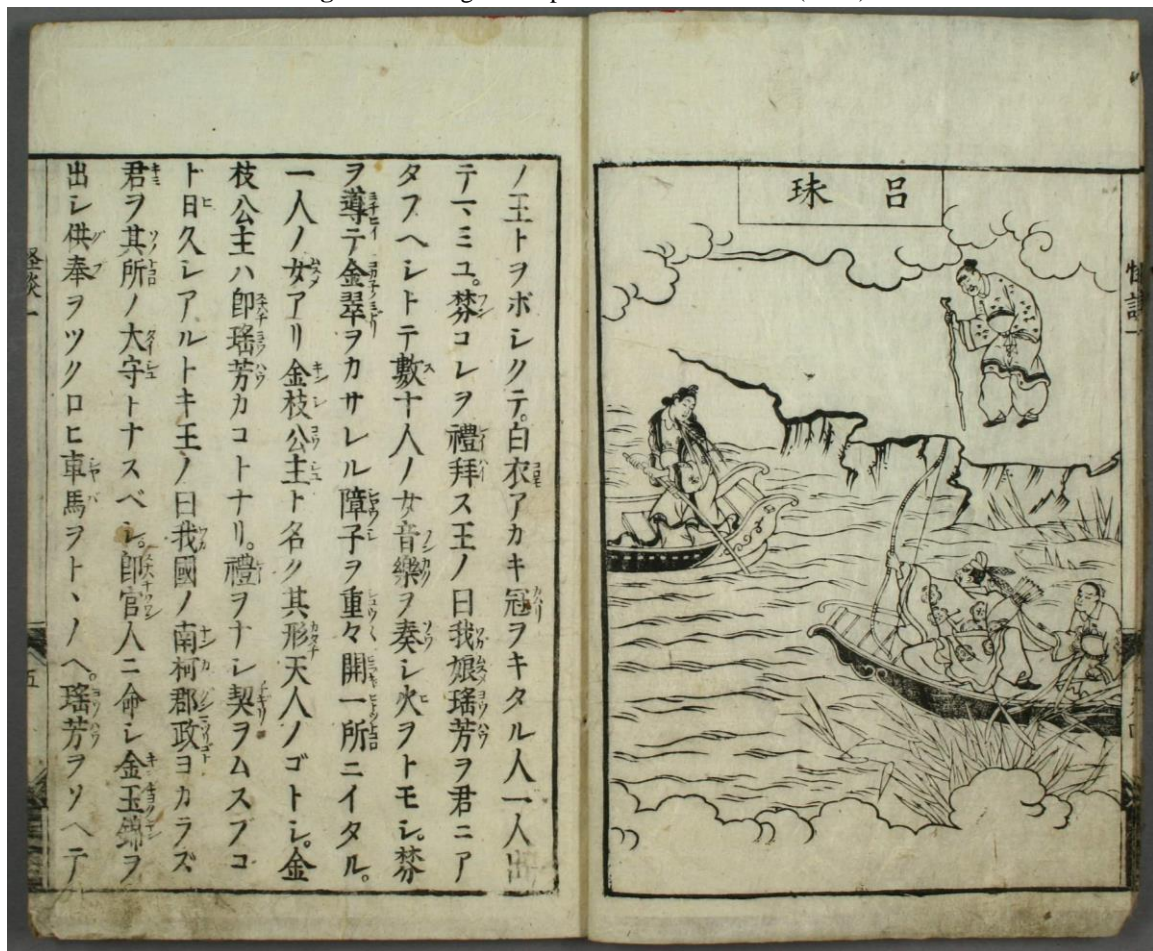 怪談一
呂球
ノ王トヲボシクテ。白衣アカキ冠ヲキタル人一人出
テマミユ。棼コレヲ禮拜ス王ノ曰我娘瑤芳ヲ君ニア
タフヘシトテ數十人ノ女音樂ヲ奏シ火ヲトモシ。棼
ヲ導テ金翠ヲカサレル障子ヲ重々開一所ニイタル。
一人ノ女アリ金枝公主ト名ク其形天人ノゴトシ。金
枝公主ハ即瑤芳カコトナリ。禮ヲナシ契ヲムスブコ
ト日久シアルトキ王ノ曰我國ノ南柯郡政ヨカラズ
君ヲ其所ノ大守トナスベシ。即官人ニ命シ金玉錦ヲ
出シ供奉ヲツクロヒ車馬ヲトヽノヘ。瑤芳ヲソヘテ
怪談一
五